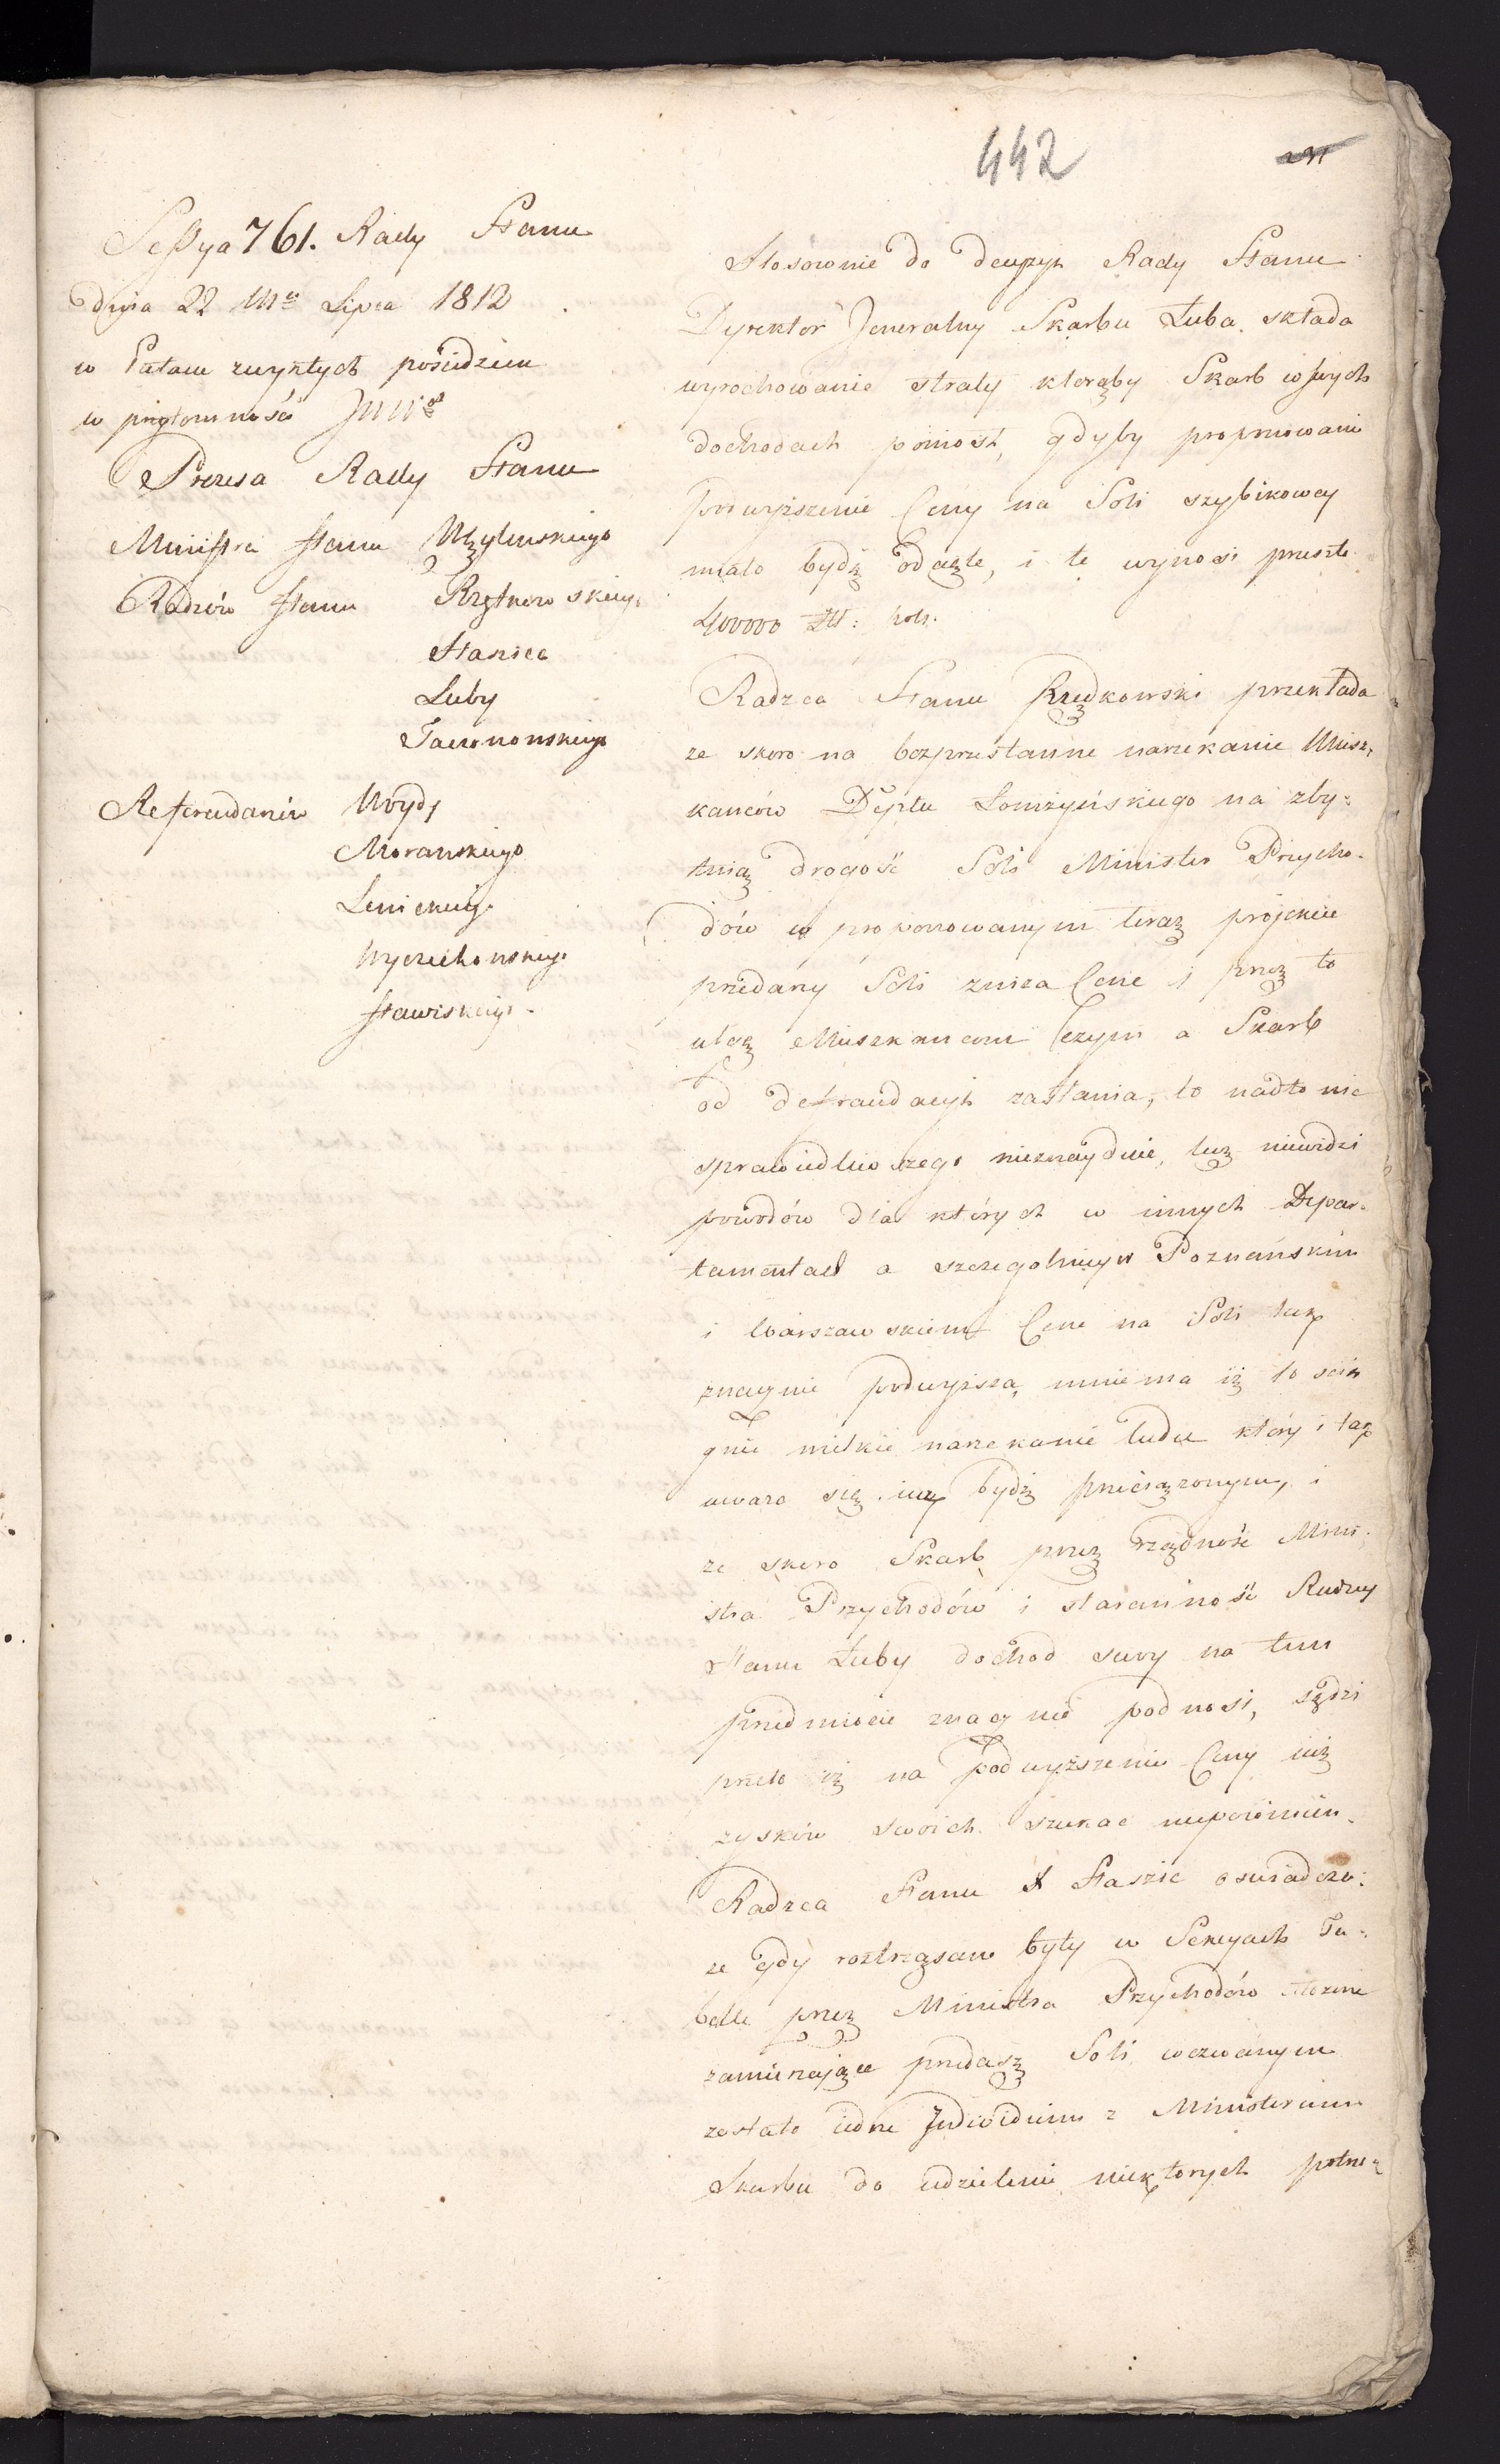 442
Sessya 761. Rady Stanu
dnia 22 Mca Lipca 1812
w Pałacu zwykłych posiedzeń
w przytomności JWW
Prezesa Rady Stanu
Ministra Stanu Węglenskiego
Radzców Stanu Rzętkowskiego
Staszica
Łuby
Tarnowskiego
Referendarzów Woydy
Morawskiego
Lenickiego
Wyczechowskiego
Stawiskiego
Stosownie do decyzyi Rady Stanu
Dyrektor Jeneralny Skarbu Łuba składa
wyrochowanie straty którąby Skarb w swych
dochodach poniosł, gdyby proponowane
podwyższenie Ceny na Soli szybikowey
miało bydź odięte, i te wynosi przeszło
400000 Zł: pols.
Radzca Stanu Rzędkowski przekłada
ze skoro na bezprzestanne narzekanie Miesz,
kańców Deptu Łomżyńskiego na zby:
tnią drogość Soli Minister Przycho.
dów w proponowanym teraz projekcie
przedaży Soli zniża Cenę i przez to
ulgę Mieszkancom czyni a Skarb
od defraudacyi zasłania, to nadto nic
sprawiedliwszego nieznayduie, lecz niewidzi
powodów dla których w innych Depar.
tamentach a szczegolniey w Poznańskim
i Warszawskiem Cenę na Soli tak
znacznie podwyższa, mniema iż to ścią
gnie wielkie narzekanie ludu który i tak
uważa się iuż bydź przeciążonym, i
ze skoro Skarb przez rządność Mini,
stra Przychodów i staranność Radzcy
Stanu Łuby dochod swóy na tem
przedmiocie znacznie podnosi, sądzi
przeto iż na podwyższenie Ceny iuż
zysków swoich szukać niepowinien.
Radzca Stanu X Staszic oswiadcza:
ze gdy roztrząsane były w Sekcyach Ta:
belle przez Ministra Przychodów złożone
zamierzające przedaż Soli wezwanym
zostało iedne Indiwiduum z Ministerium
Skarbu do udzielenia niektorych potrze: